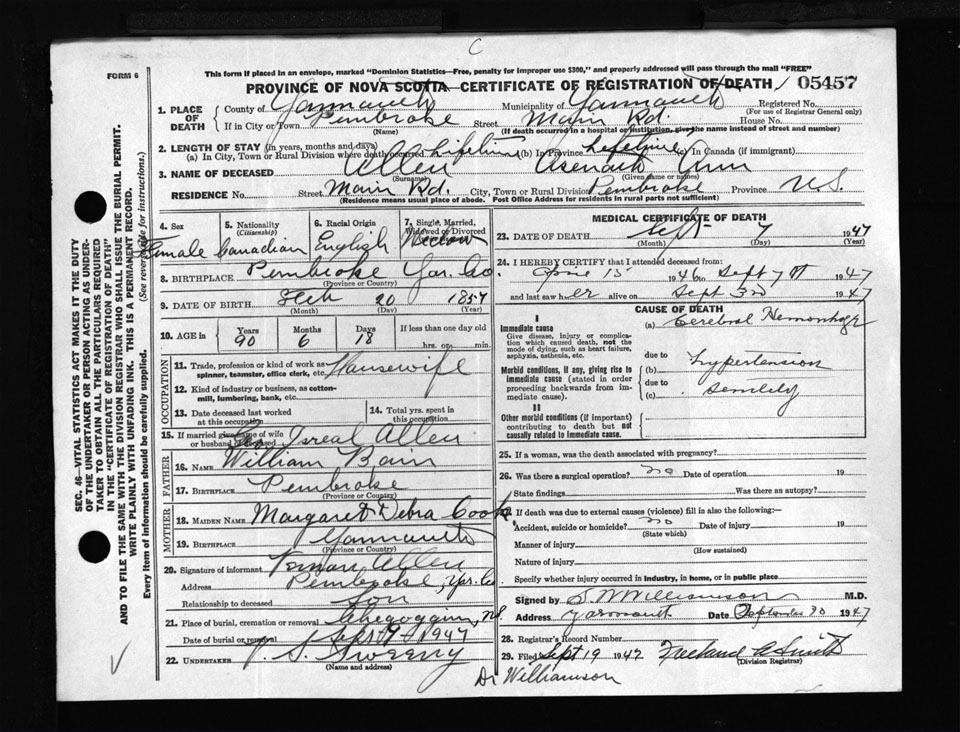 C
FORM 6
This form if placed in an envelope, marked "Dominion Statistics—Free, penalty for improper use $300," and properly addressed will pass through the mail "FREE"
PROVINCE OF NOVA SCOTIA—CERTIFICATE OF REGISTRATION OF DEATH 05457
1. PLACE OF DEATH County of Yarmouth Municipality of Yarmouth Registered No.
(For use of Registrar General only)
If in City or Town Pembroke Street Main Rd. House No.
(Name) (If death occurred in a hospital or institution, give the name instead of street and number)
2. LENGTH OF STAY (in years, months and days)
(a) In City, Town or Rural Division where death occurred Lifetime (b) In Province Lifetime (c) In Canada (if immigrant)
3. NAME OF DECEASED Allen Asenath Ann
(Surname) (Given name or names)
RESIDENCE No. Street Main Rd. City, Town or Rural Division Pembroke Province N.S.
(Residence means usual place of abode. Post Office Address for residents in rural parts not sufficient)
4. Sex Female
5. Nationality (Citizenship) Canadian
6. Racial Origin English
7. Single, Married, Widowed or Divorced Widow
8. BIRTHPLACE Pembroke Yar. Co.
(Province or Country)
9. DATE OF BIRTH 20 1857
(Month) (Day) (Year)
10. AGE in Years 90 Months 6 Days 18 If less than one day old hrs. or min.
OCCUPATION
11. Trade, profession or kind of work as spinner, teamster, office clerk, etc. Housewife
12. Kind of industry or business, as cotton-mill, lumbering, bank, etc.
13. Date deceased last worked at this occupation
14. Total yrs. spent in this occupation
15. If married give name of wife or husband of deceased Isreal Allen
FATHER
16. NAME William Bain
17. BIRTHPLACE Pembroke
(Province or Country)
MOTHER
18. MAIDEN NAME Margaret Debra Cook
19. BIRTHPLACE Yarmouth
(Province or Country)
20. Signature of informant Allen
Address Pembroke, Yar. Co.
Relationship to deceased Son
21. Place of burial, cremation or removal Chegoggin, N.S.
Date of burial or removal Sept 9 1947
22. UNDERTAKER V. S. Sweeny
(Name and address)
MEDICAL CERTIFICATE OF DEATH
23. DATE OF DEATH Sept 7 1947
(Month) (Day) (Year)
24. I HEREBY CERTIFY that I attended deceased from:
April 15 1946 to Sept 7th 1947
and last saw her alive on Sept 3rd 1947
CAUSE OF DEATH
I
Immediate cause
Give disease, injury or complication which caused death, not the mode of dying, such as heart failure, asphyxia, asthenia, etc.
(a) Cerebral Hemorrhage
due to
Morbid conditions, if any, giving rise to immediate cause (stated in order proceeding backwards from immediate cause).
(b) Hypertension
due to
(c) Senility
II
Other morbid conditions (if important) contributing to death but not causally related to immediate cause.
25. If a woman, was the death associated with pregnancy?
26. Was there a surgical operation? no Date of operation 19
State findings Was there an autopsy?
27. If death was due to external causes (violence) fill in also the following:—
Accident, suicide or homicide? no Date of injury 19
(State which)
Manner of injury
(How sustained)
Nature of injury
Specify whether injury occurred in industry, in home, or in public place
Signed by Williamson M.D.
Address Yarmouth Date September 30 1947
28. Registrar's Record Number
29. Filed Sept 19 1947 Smith
(Division Registrar)
Dr Williamson
SEC. 46—VITAL STATISTICS ACT MAKES IT THE DUTY
OF THE UNDERTAKER OR PERSON ACTING AS UNDER-
TAKER TO OBTAIN ALL THE PARTICULARS REQUIRED
IN THE "CERTIFICATE OF REGISTRATION OF DEATH"
AND TO FILE THE SAME WITH THE DIVISION REGISTRAR WHO SHALL ISSUE THE BURIAL PERMIT.
WRITE PLAINLY WITH UNFADING INK. THIS IS A PERMANENT RECORD.
Every item of information should be carefully supplied. (See reverse side for instructions.)